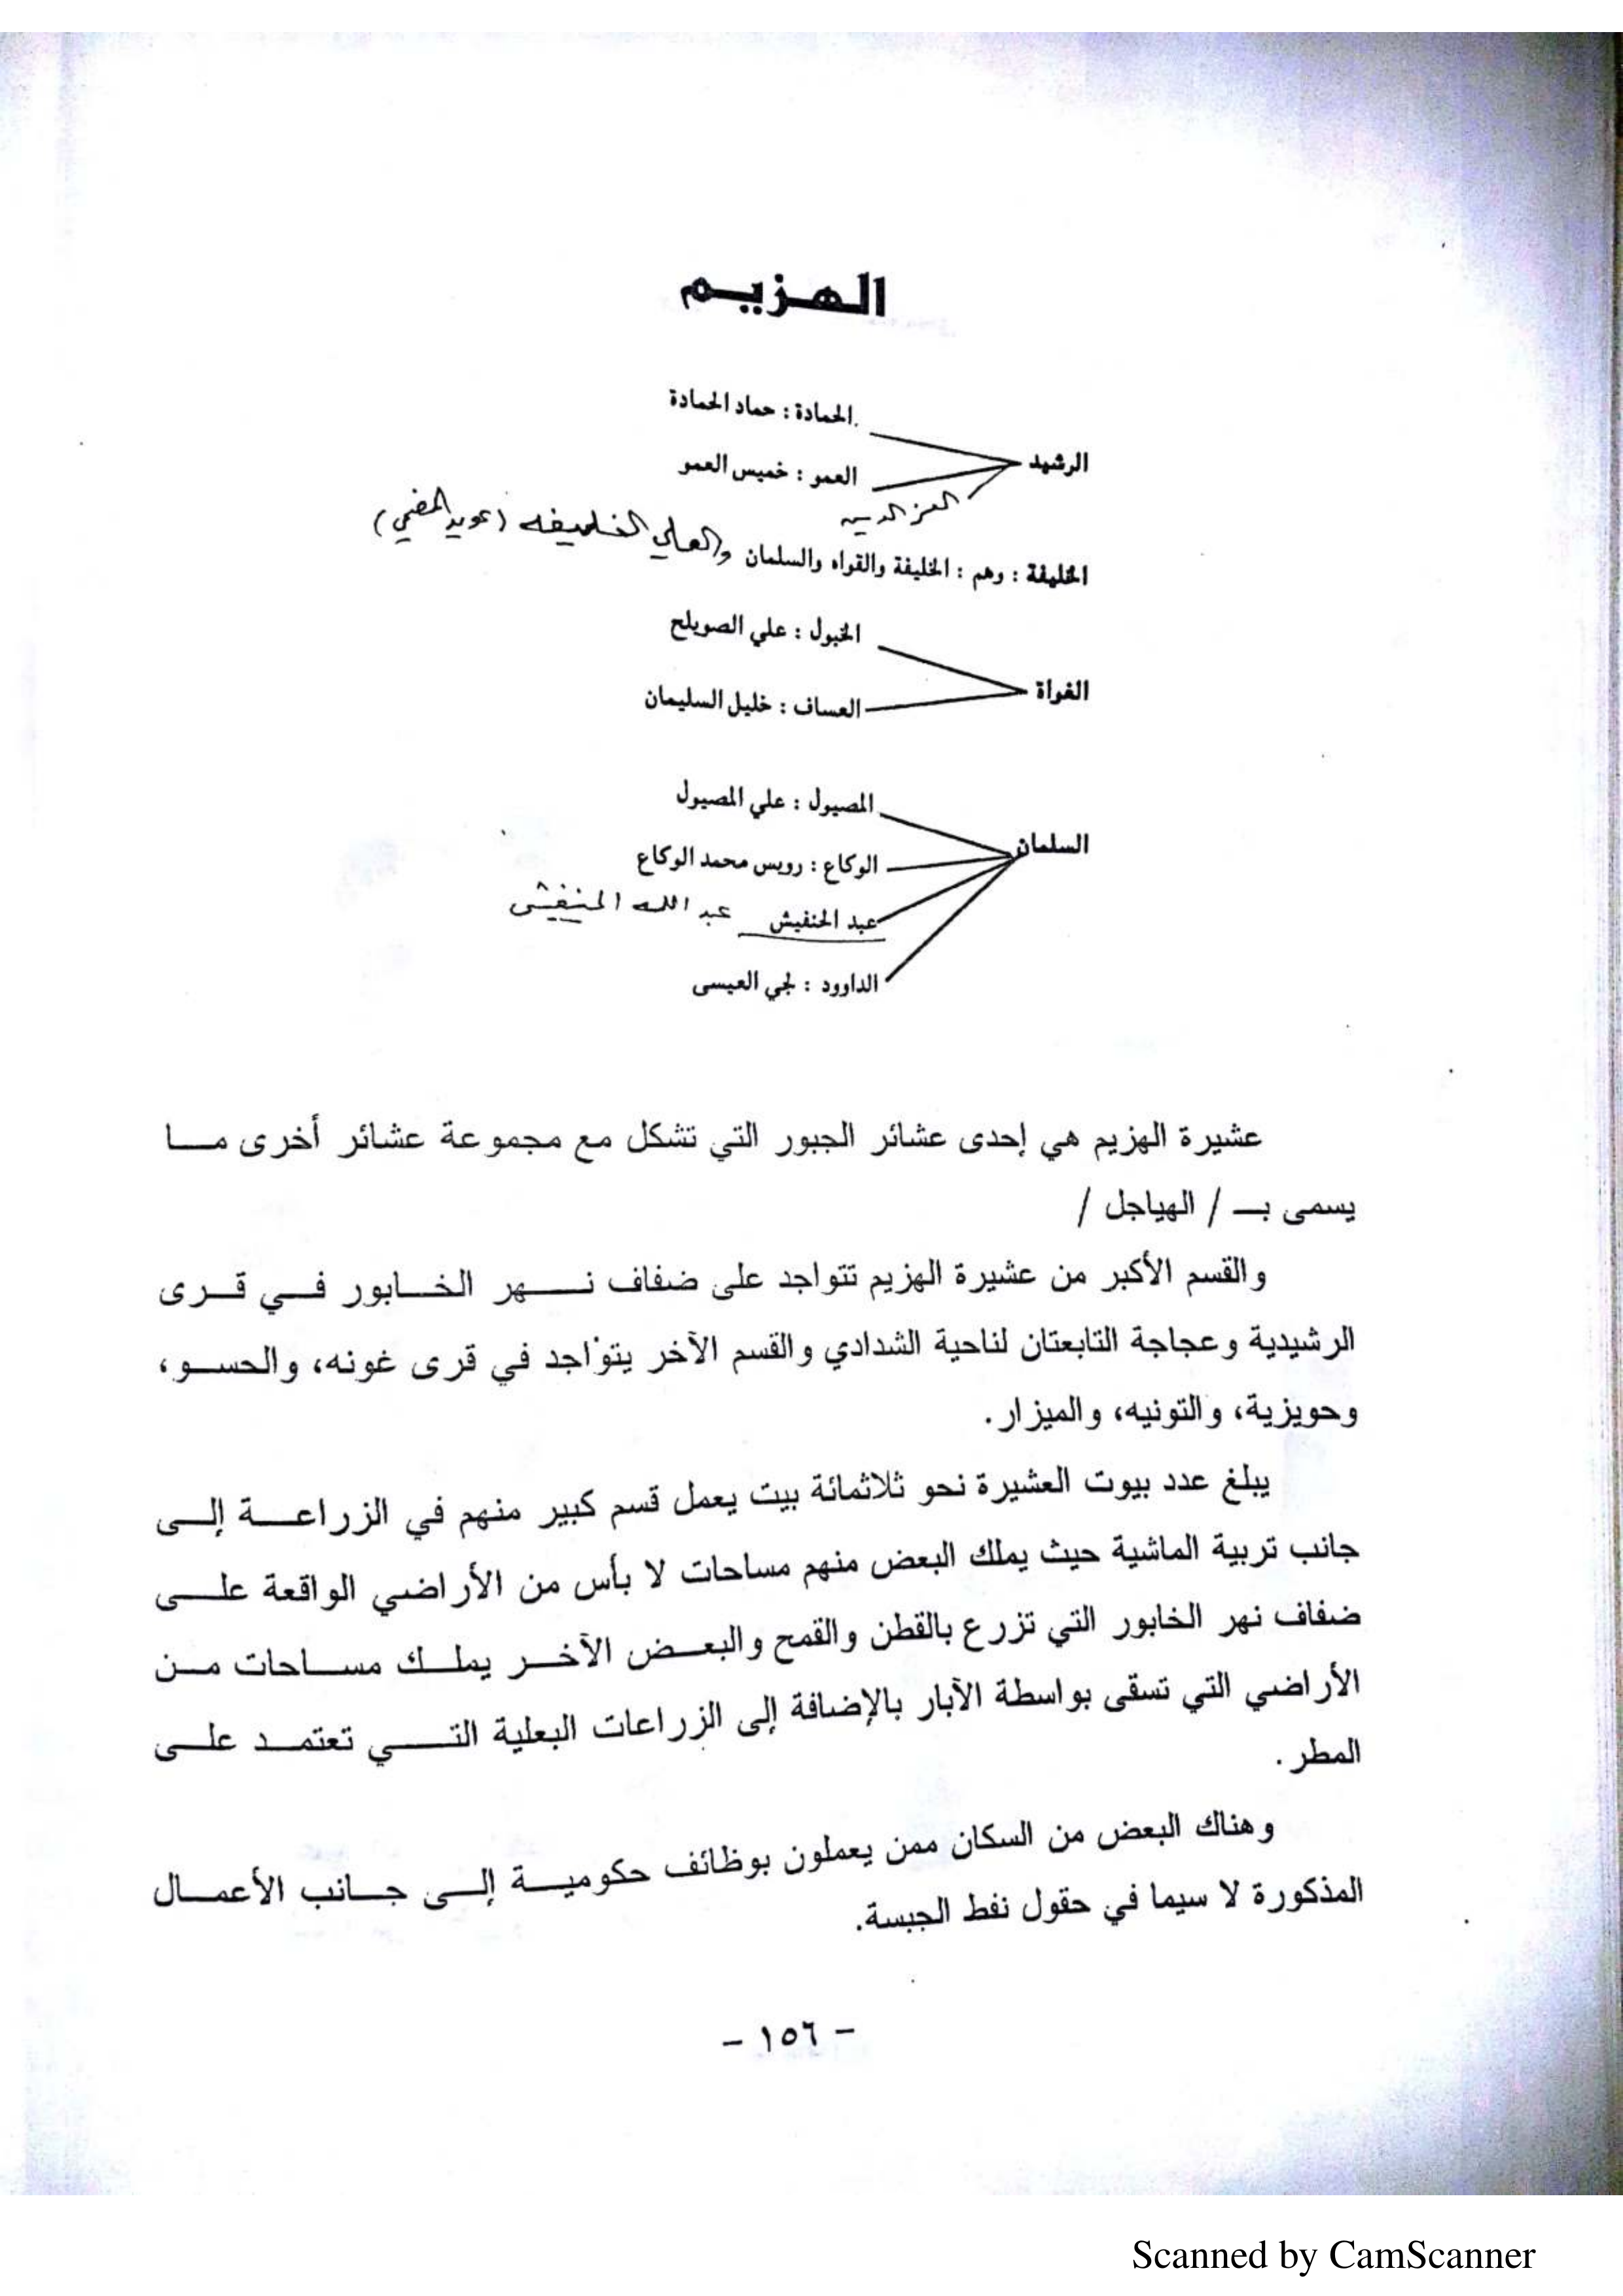 الهزيم
الحمادة : حماد الحمادة
الرشيد
العمو : خميس العمو
العز الدين
الخليفة : وهم : الخليفة والقواه والسلمان والعلي الخليفه (عويد المضحي)
الخبول : علي الصويلح
الفواة
العساف : خليل السليمان
المصيول : علي المصيول
السلمان
الوكاع : رويس محمد الوكاع
عبد الحنفيش عبد الله الحنفيش
الداوود : لجي العيسى
عشيرة الهزيم هي إحدى عشائر الجبور التي تشكل مع مجموعة عشائر أخرى ما
يسمى بـ / الهياجل /
والقسم الأكبر من عشيرة الهزيم تتواجد على ضفاف نهر الخابور في قرى
الرشيدية وعجاجة التابعتان لناحية الشدادي والقسم الآخر يتواجد في قرى غونه، والحسو،
وحويزية، والتونيه، والميزار.
يبلغ عدد بيوت العشيرة نحو ثلاثمائة بيت يعمل قسم كبير منهم في الزراعة إلى
جانب تربية الماشية حيث يملك البعض منهم مساحات لا بأس من الأراضي الواقعة على
ضفاف نهر الخابور التي تزرع بالقطن والقمح والبعض الآخر يملك مساحات من
الأراضي التي تسقى بواسطة الآبار بالإضافة إلى الزراعات البعلية التي تعتمد على
المطر.
وهناك البعض من السكان ممن يعملون بوظائف حكومية إلى جانب الأعمال
المذكورة لا سيما في حقول نفط الجبسة.
- ١٥٦ -
Scanned by CamScanner